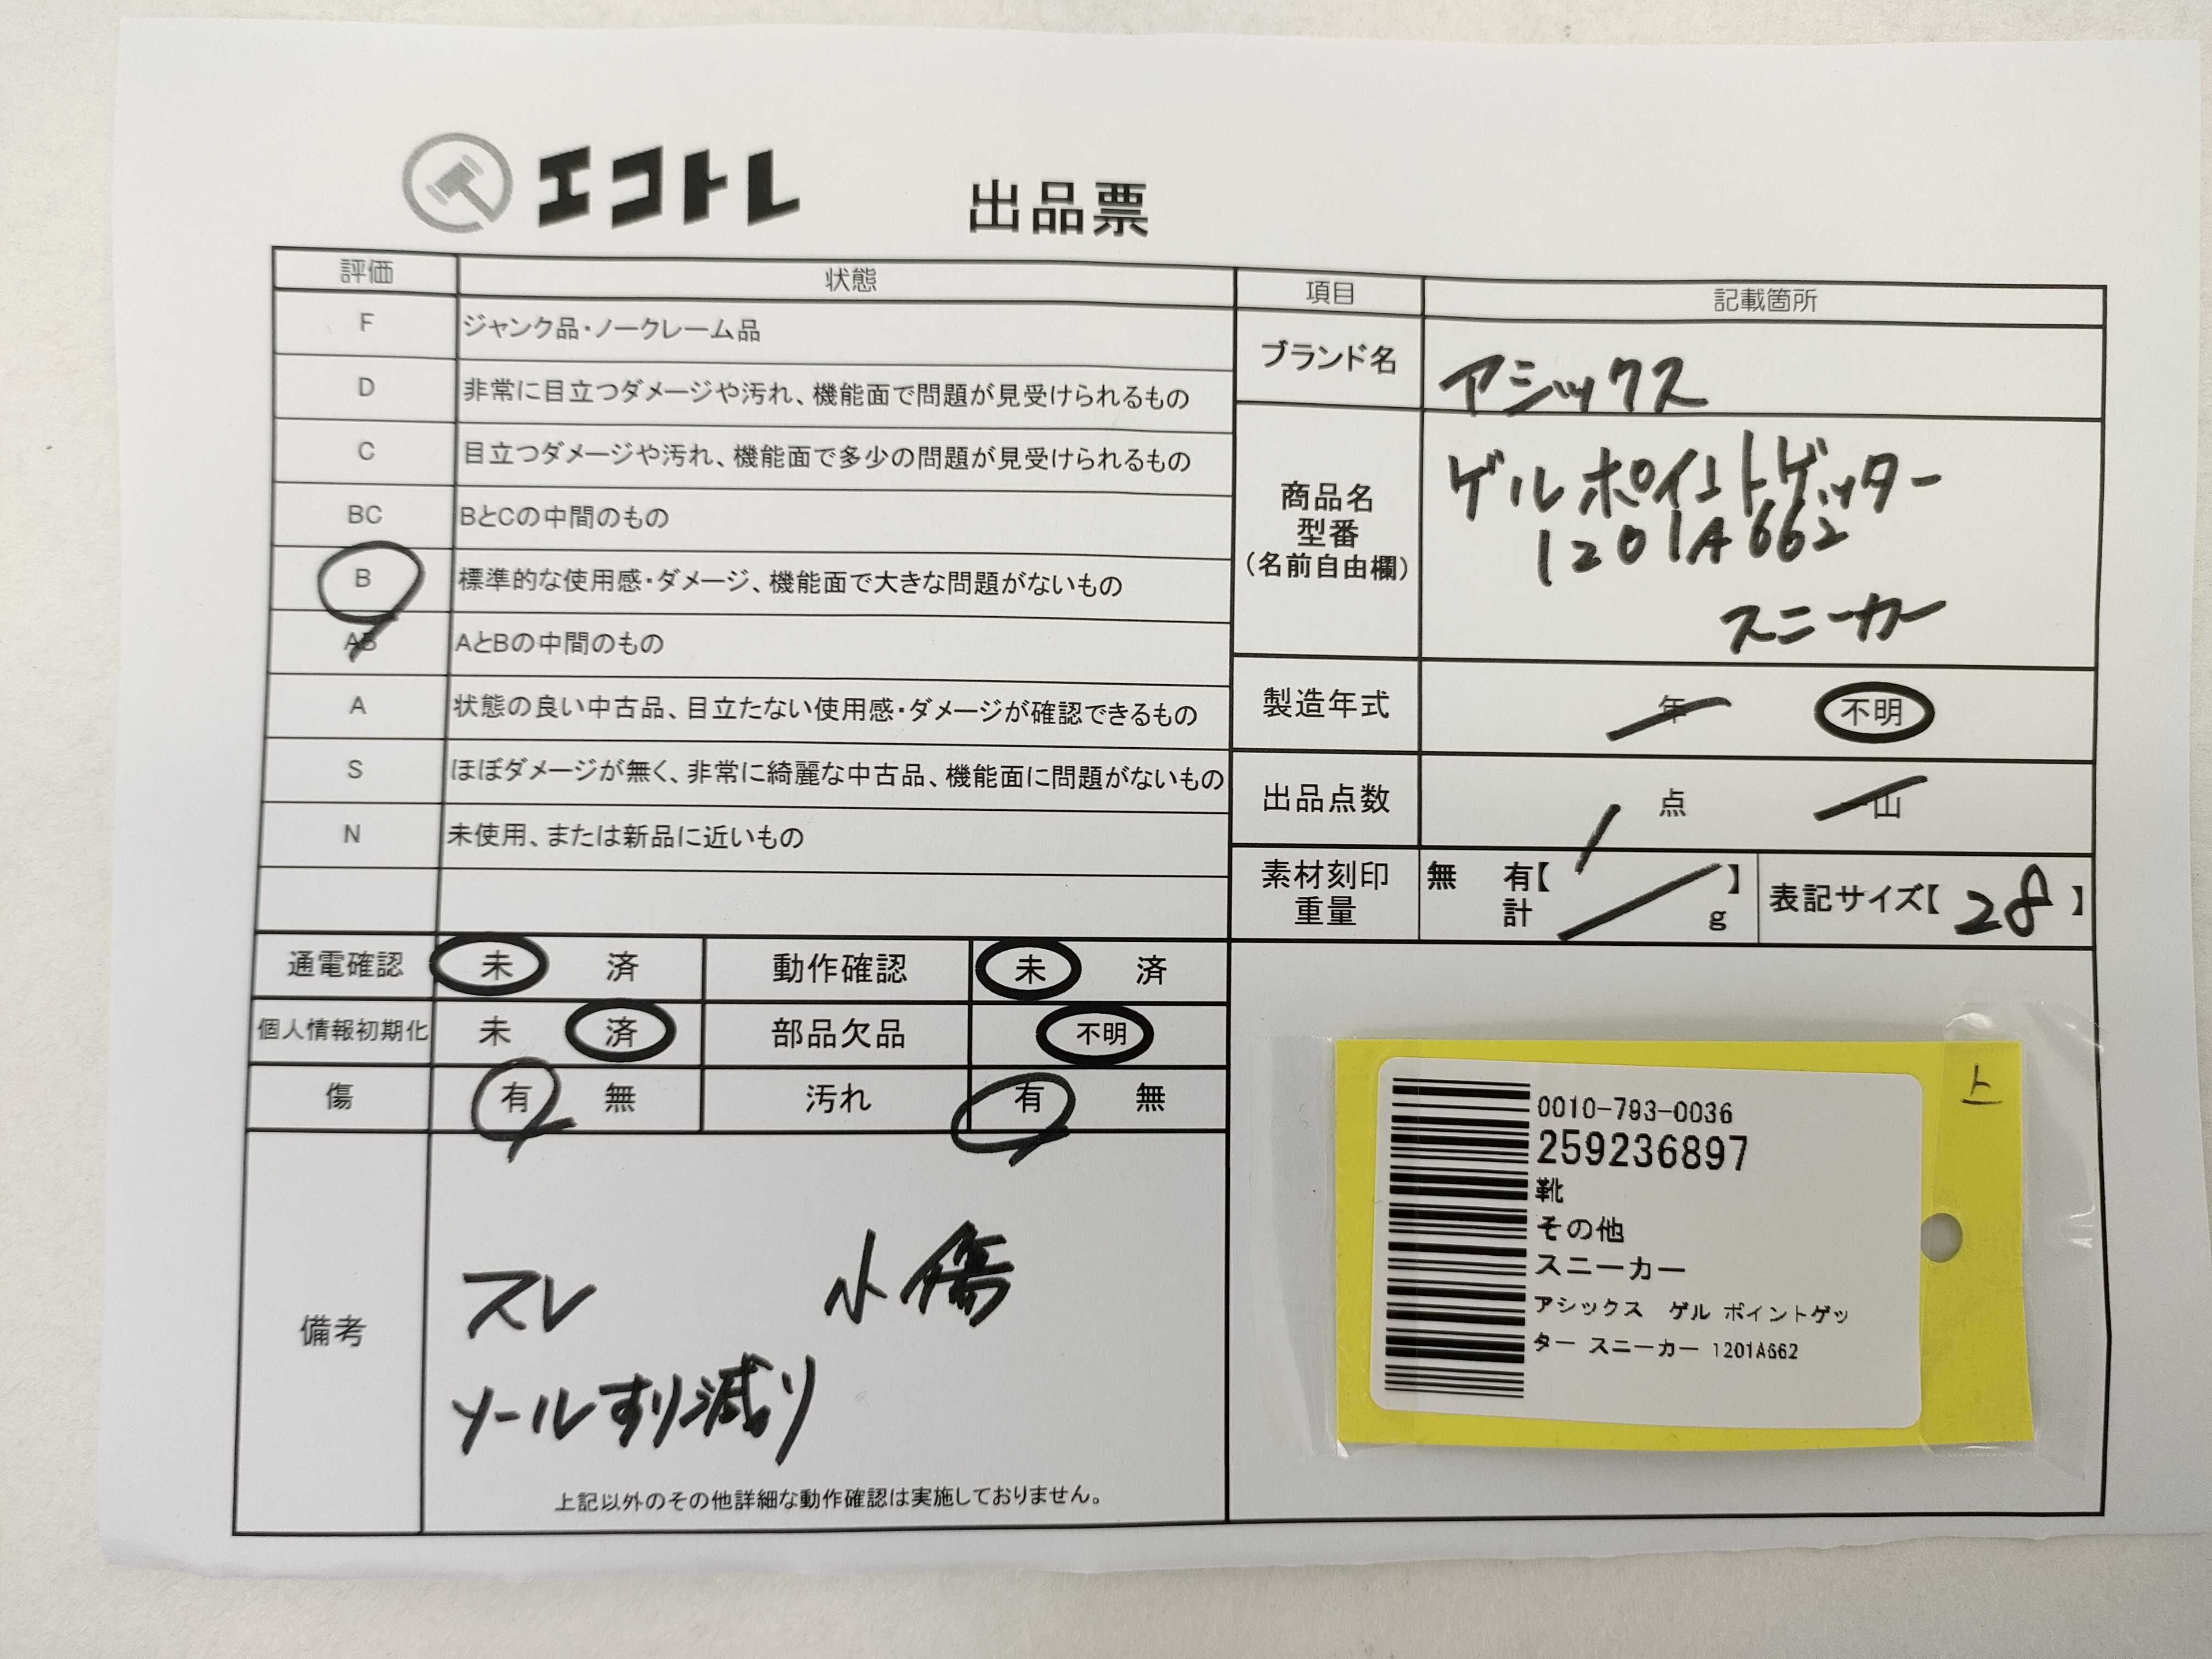 エコトレ 出品票
評価 状態
F ジャンク品・ノークレーム品
D 非常に目立つダメージや汚れ、機能面で問題が見受けられるもの
C 目立つダメージや汚れ、機能面で多少の問題が見受けられるもの
BC BとCの中間のもの
B 標準的な使用感・ダメージ、機能面で大きな問題がないもの
AB AとBの中間のもの
A 状態の良い中古品、目立たない使用感・ダメージが確認できるもの
S ほぼダメージが無く、非常に綺麗な中古品、機能面に問題がないもの
N 未使用、または新品に近いもの
通電確認 未 済 動作確認 未 済
個人情報初期化 未 済 部品欠品 不明
傷 有 無 汚れ 有 無
備考
スレ 小傷
ソールすり減り
上記以外のその他詳細な動作確認は実施しておりません。
項目 記載箇所
ブランド名 アシックス
商品名
型番
(名前自由欄)
ゲルポイントゲッター
1201A662
スニーカー
製造年式 年 不明
出品点数 1 点 山
素材刻印 無 有【 】
重量 計 g
表記サイズ【 28 】
上
0010-793-0036
259236897
靴
その他
スニーカー
アシックス ゲル ポイントゲッ
ター スニーカー 1201A662